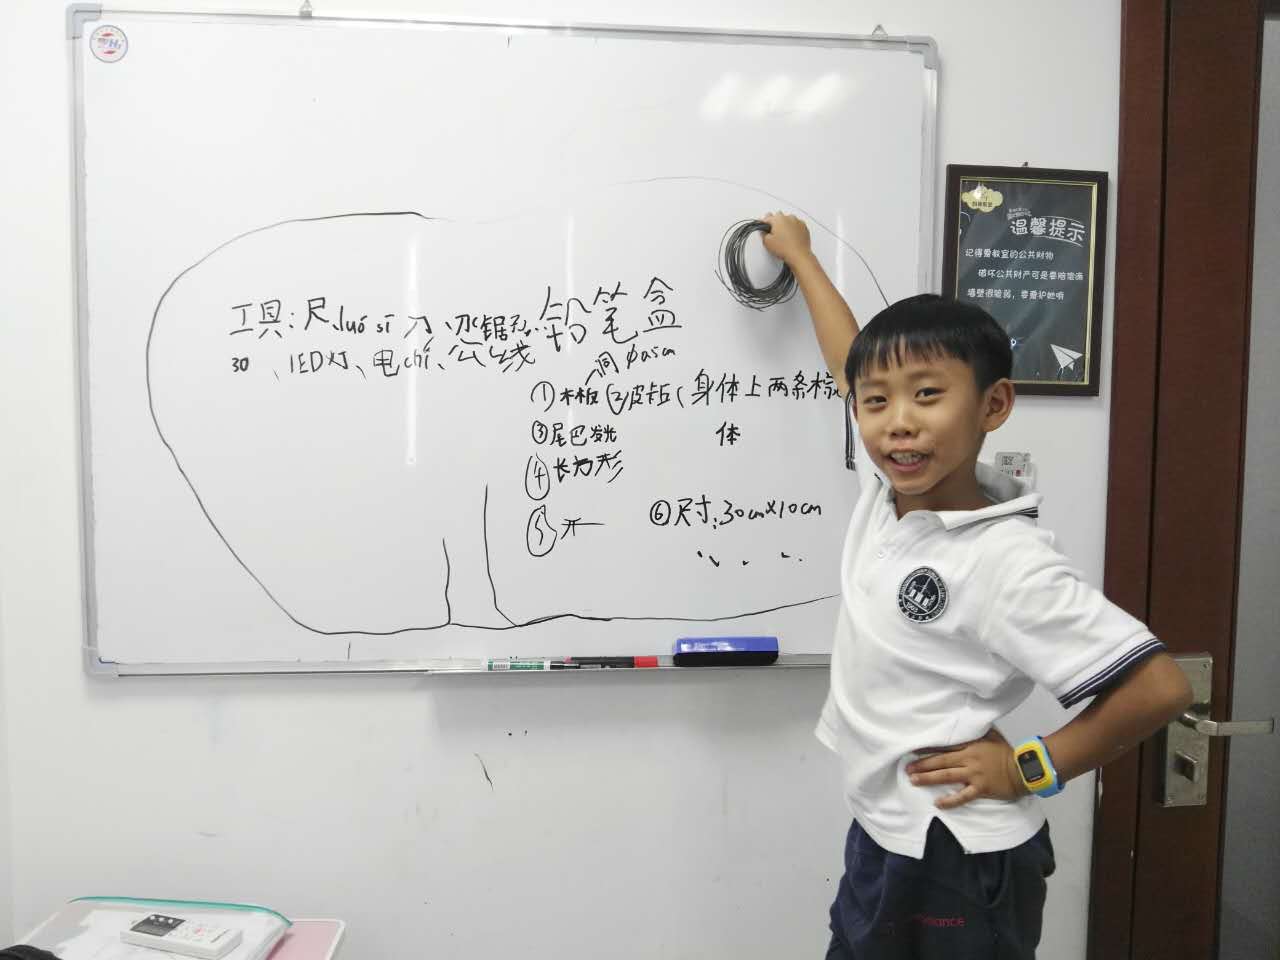 铅笔盒
工具:尺、luó sī 刀、
30、LED灯、电chí、公线
洞 φ0.5cm
①木板 ②皮卡丘(身体上两条棕
体
③尾巴发光
④长方形
⑤开一
⑥尺寸:30cm×10cm
温馨提示
记得爱教室的公共财物
破坏公共财产可是要赔偿滴
墙壁很脆弱,要爱护她哦